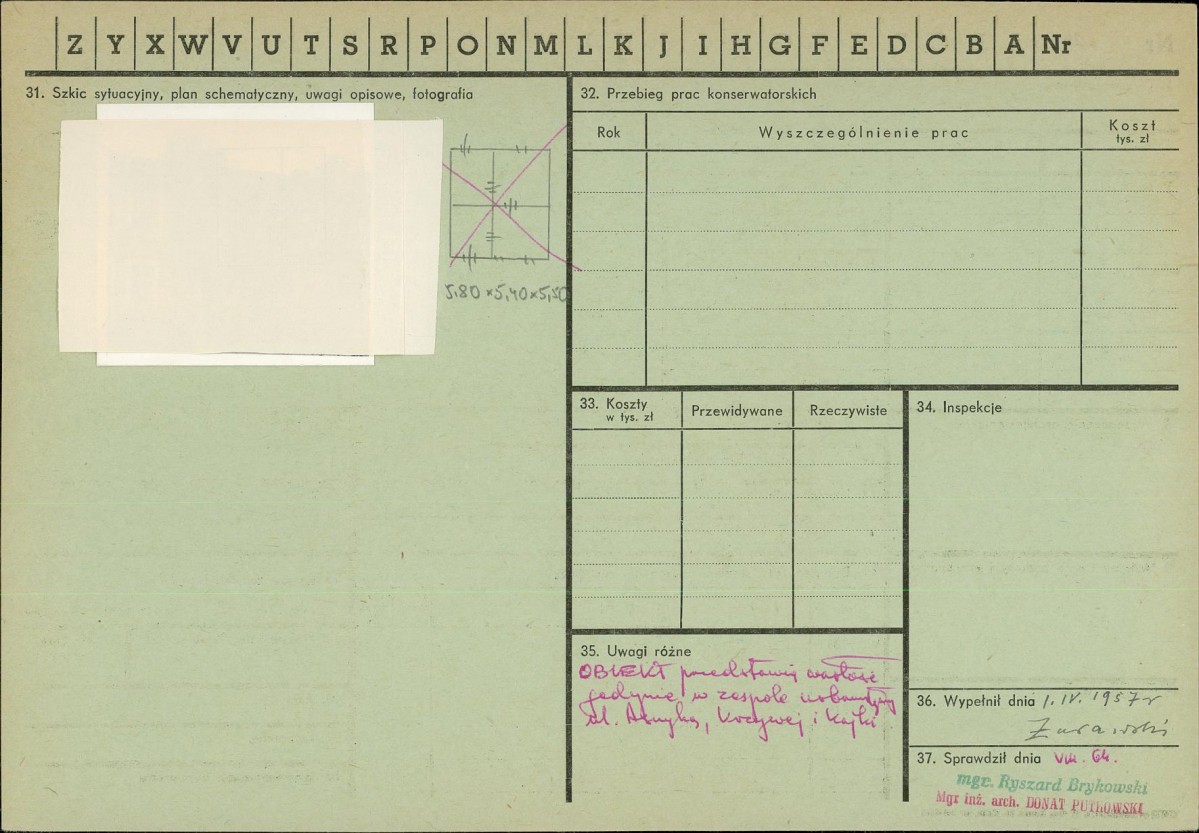 Z Y X W V U T S R P O N M L K J I H G F E D C B A Nr
31. Szkic sytuacyjny, plan schematyczny, uwagi opisowe, fotografia
5,80 x 5,40 x 5,50
32. Przebieg prac konserwatorskich
Rok Wyszczególnienie prac Koszt
tys. zł
33. Koszty
w tys. zł
Przewidywane Rzeczywiste
34. Inspekcje
35. Uwagi różne
OBIEKT przedstawia wartość
jedynie w zespole
ul. Asnyka, Krzywej i Kajki
36. Wypełnił dnia 1. IV. 1957 r
Żurawski
37. Sprawdził dnia VIII. 64.
mgr. Ryszard Brykowski
Mgr inż. arch. DONAT PUTKOWSKI